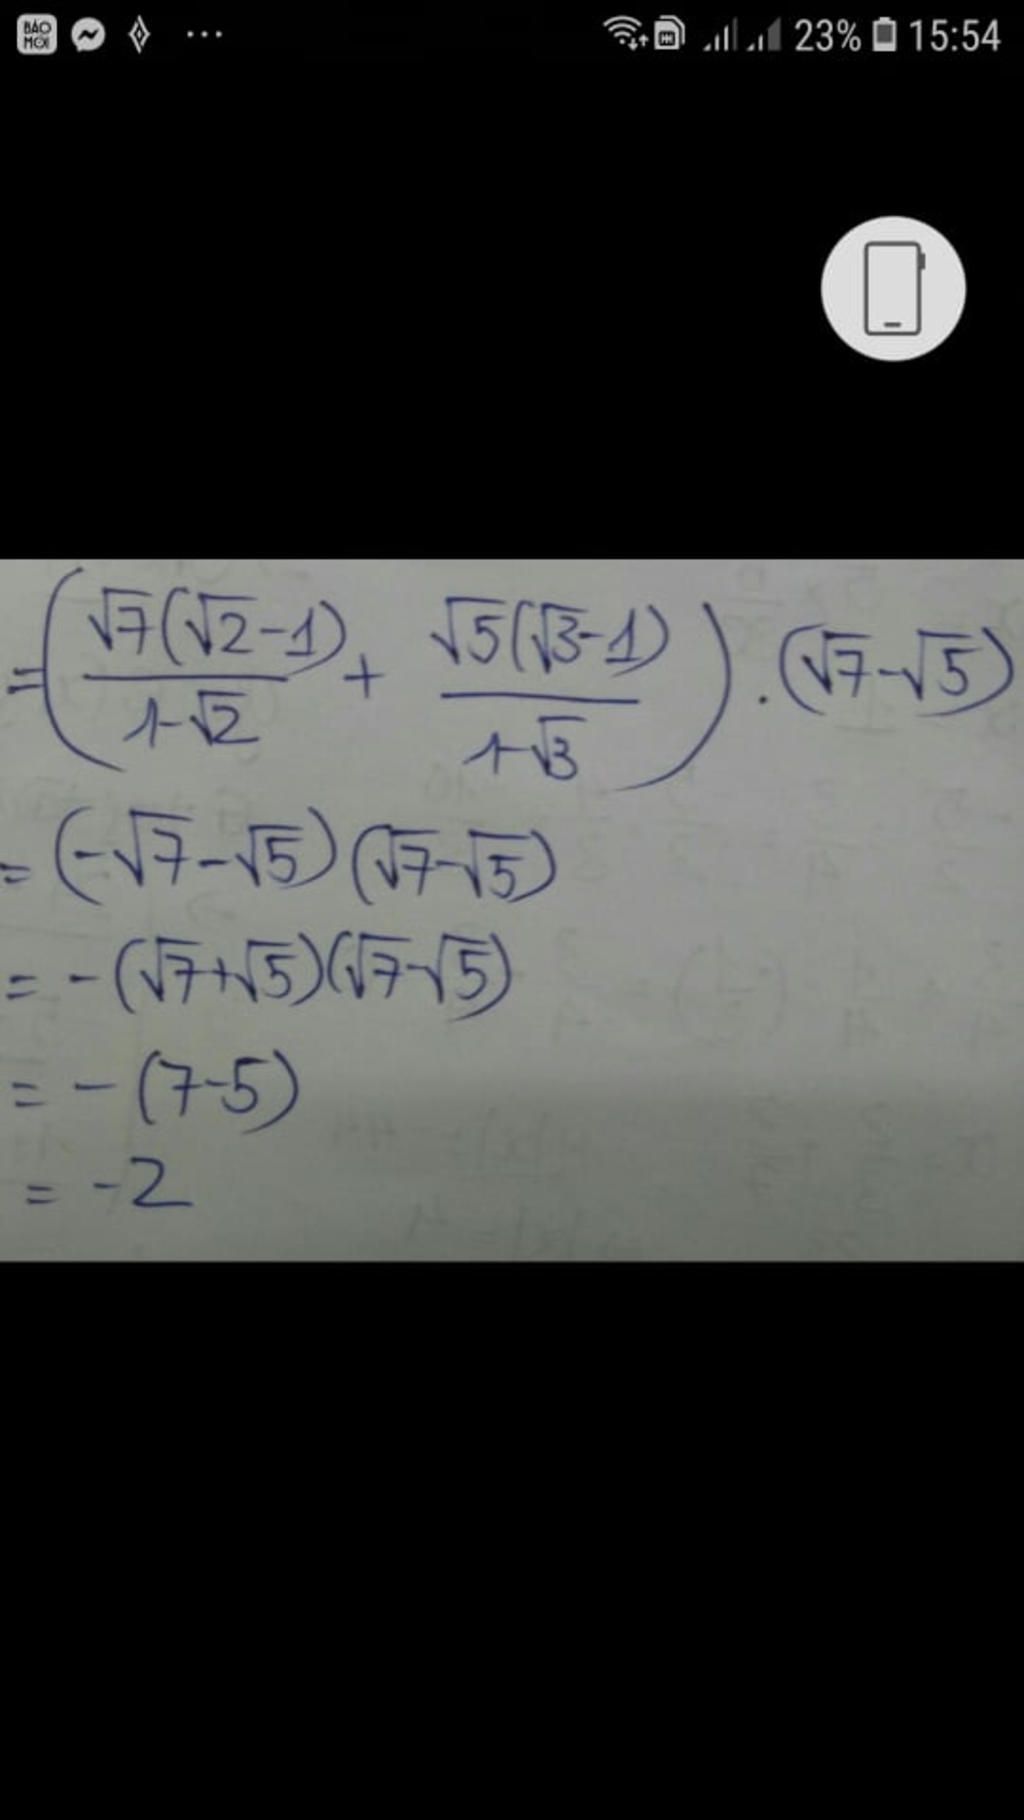 BÁO MỚI 23% 15:54
= (√7(√2-1)/1-√2 + √5(√3-1)/1-√3) . (√7-√5)
= (-√7-√5)(√7-√5)
= -(√7+√5)(√7-√5)
= -(7-5)
= -2